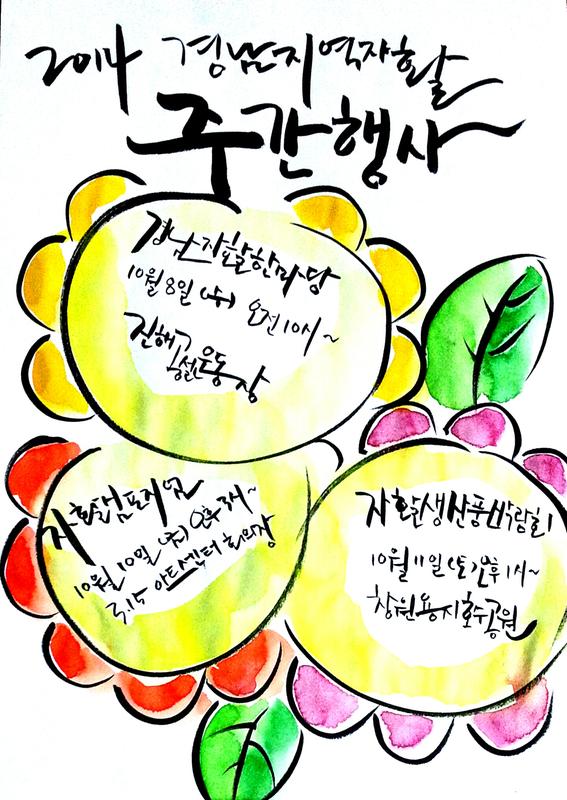 2014 경남지역자활
주간행사
경남자활한마당
10월 8일 (수) 오전 10시~
진해공설운동장
자활심포지엄
10월 10일 (금) 오후 2시~
아트섹터 회의장
자활생산품박람회
10월 11일 (토) 오후 1시~
창원용지호수공원